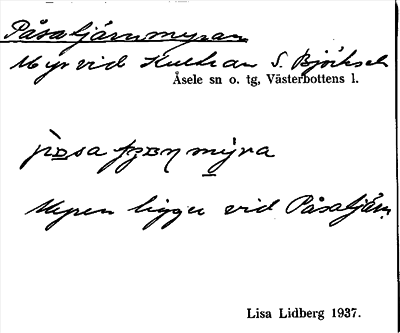 Påsatjärnmyran
Myr vid Kullran S. Björksele
Åsele sn o. tg, Västerbottens l.
myra
Myren ligger vid Påsatjärn.
Lisa Lidberg 1937.